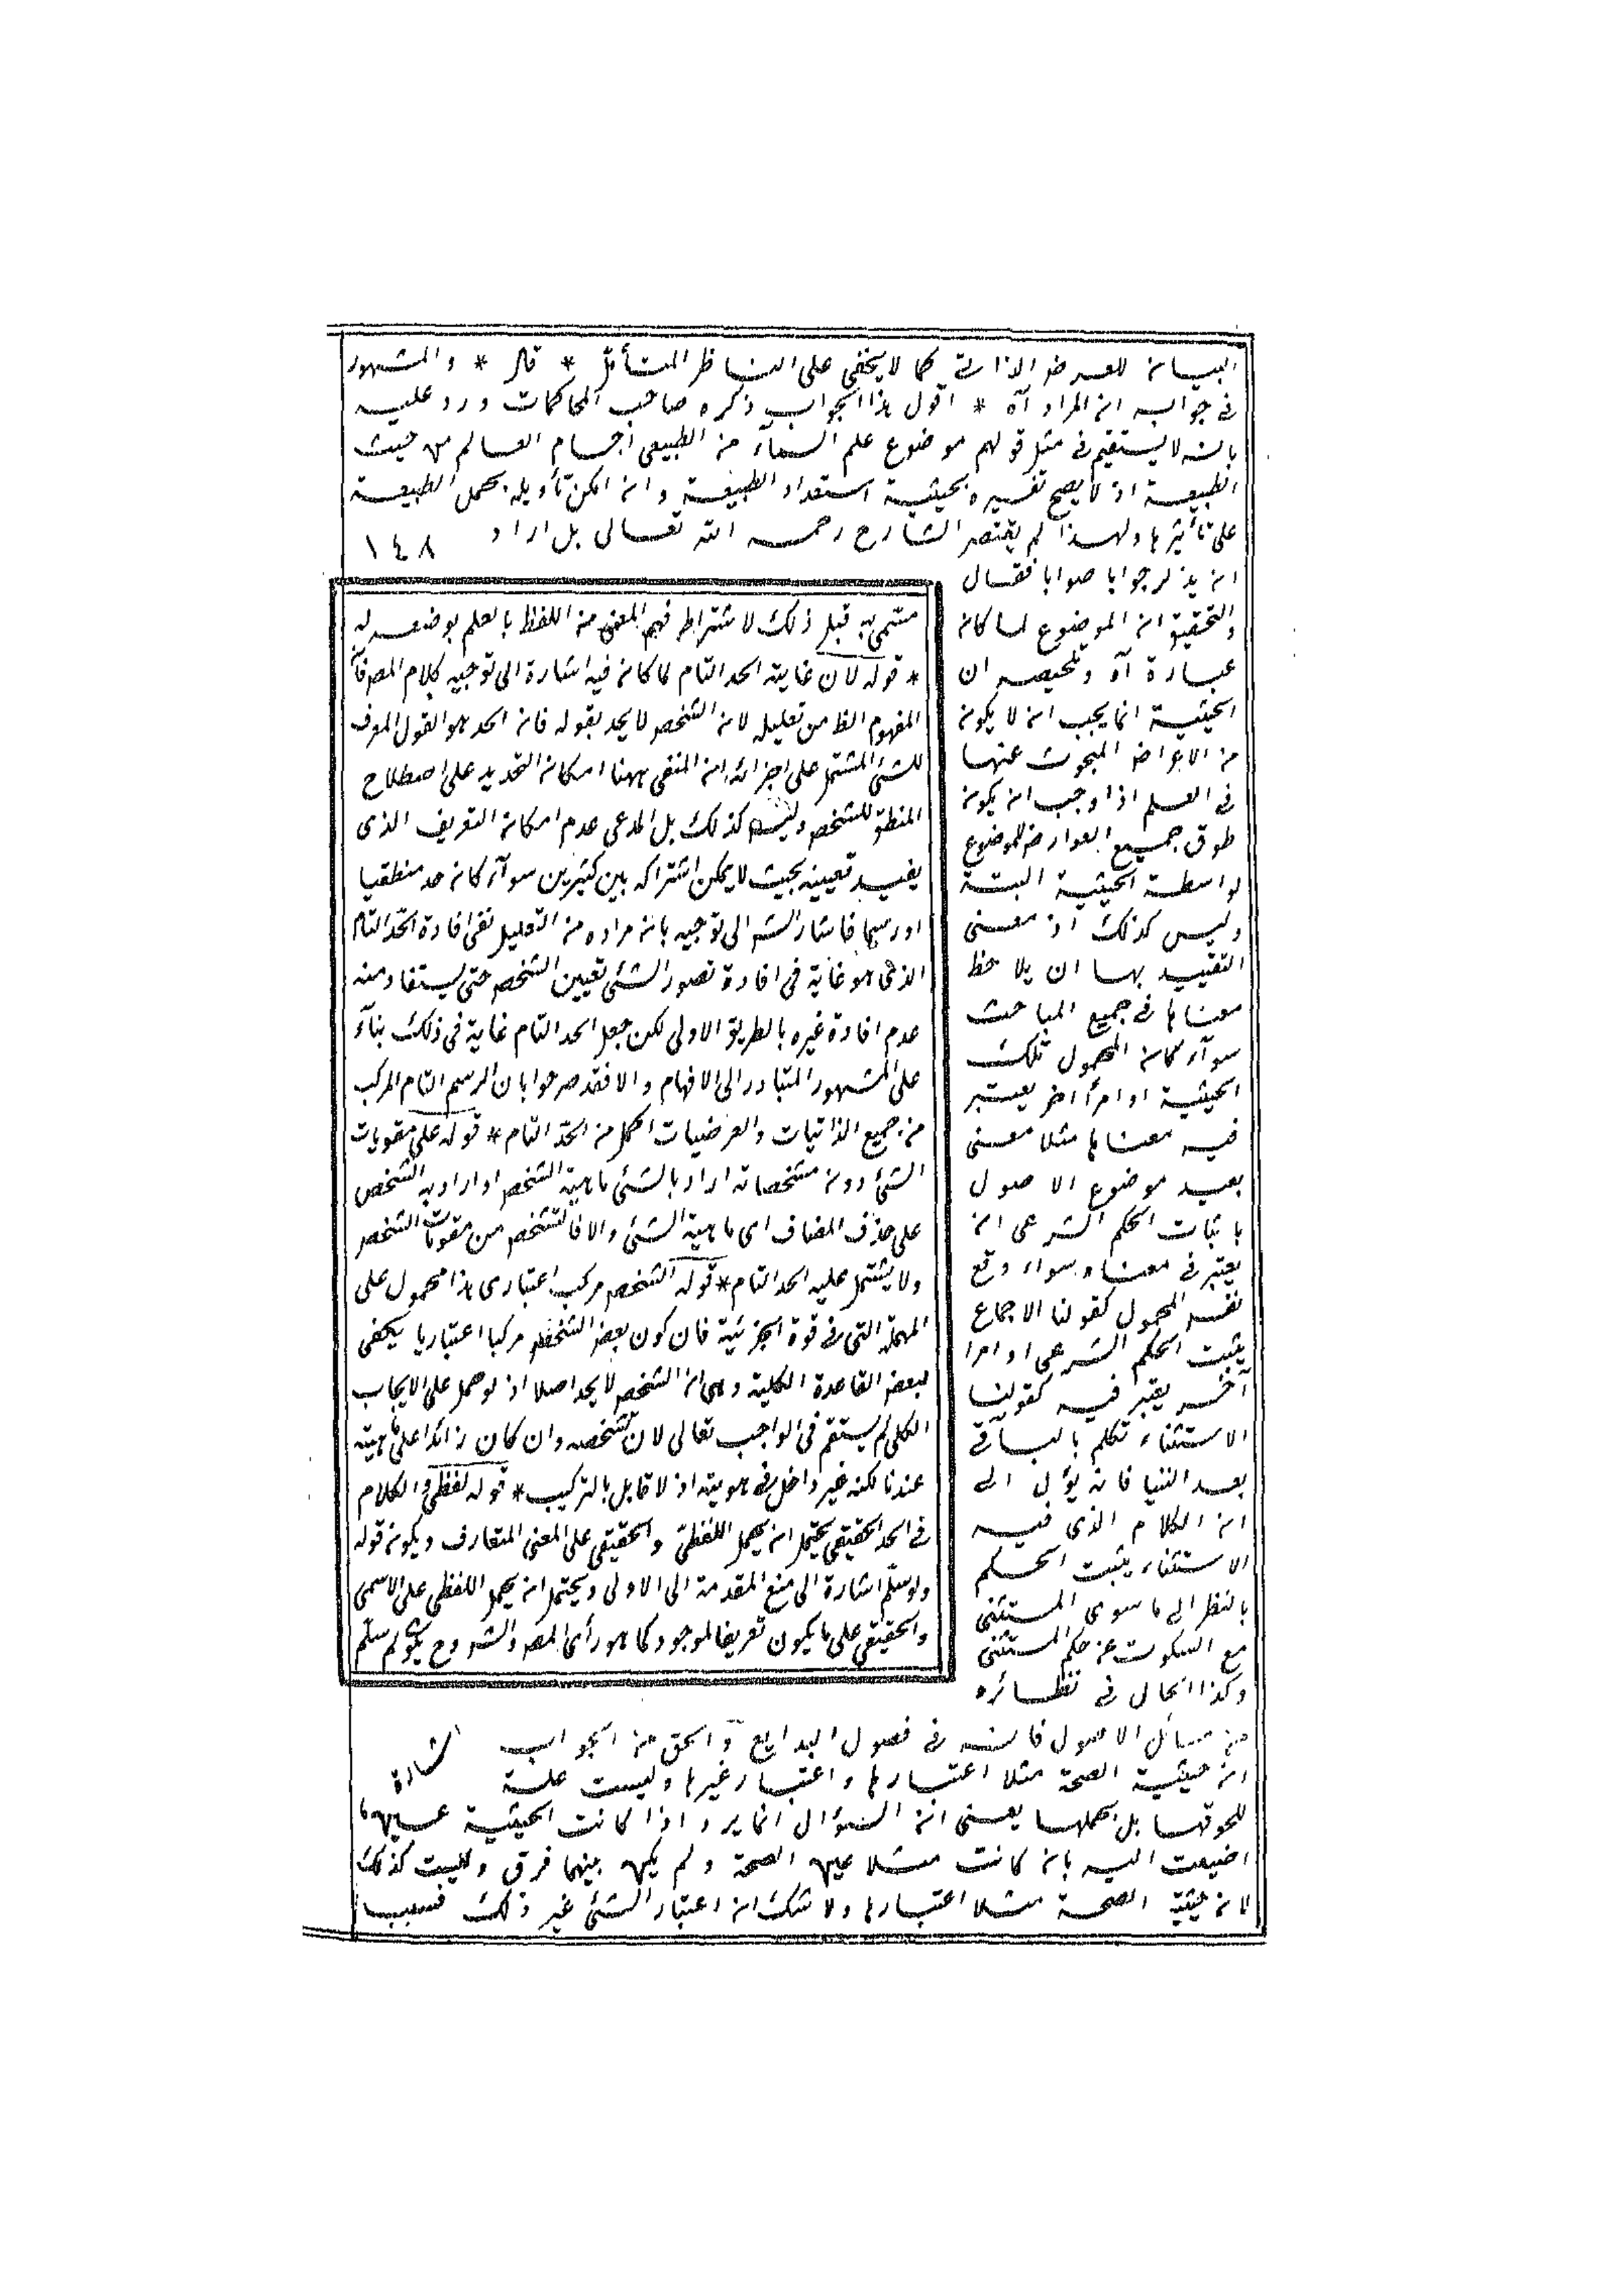 البيان للعرض الذاتى كما لا يخفى على الناظر المتأمل * قال * والمشهور
فى جوابه ان المراد آه * اقول هذا الجواب ذكره صاحب المحاكمات ورد عليه
بانه لا يستقيم فى مثل قولهم موضوع علم السمآء من الطبيعى اجسام العالم من حيث
الطبيعة اذ لا يصح تفسيره بحيثية استعداد الطبيعة وان امكن تأويله بحمل الطبيعة
على تأثيرها ولهذا لم يقتصر الشارح رحمه الله تعالى بل اراد
١٤٨
ان يذكر جوابا صوابا فقال
والتحقيق ان الموضوع لما كان
عبارة آه وتلخيصه ان
الحيثية انما يجب ان لا يكون
من الاعراض المبحوث عنها
فى العلم اذا وجب ان يكون
لحوق جميع العوارض للموضوع
بواسطة الحيثية البتة
وليس كذلك اذ معنى
التقييد بها ان يلاحظ
معناها فى جميع المباحث
سوآء كان المحمول تلك
الحيثية او امرا اخر يعتبر
فيه معناها مثلا معنى
تقييد موضوع الاصول
باثبات الحكم الشرعى ان
يعتبر فى معناه سواء وقع
نفس المحمول كقولنا الاجماع
يثبت الحكم الشرعى او امرا
آخر يعتبر فيه كقولنا
الاستثناء تكلم بالباقى
بعد الثنيا فانه يؤل الى
ان الكلام الذى فيه
الاستثناء يثبت الحكم
بالنظر الى ما سوى المستثنى
مع السكوت عن حكم المستثنى
وكذا الحال فى نظائره
من مسائل الاصول فانه فى فصول البدايع والحق من الجواب
ان حيثية الصحة مثلا اعتبارها واعتبار غيرها وليست علة
للحوقها بل بحملها يعنى ان السؤال انما يرد اذا كانت الحيثية عين ما
اضيفت اليه بان كانت مثلا عين الصحة ولم يكن بينهما فرق وليست كذلك
لان حيثية الصحة مثلا اعتبارها ولا شك ان اعتبار الشئ غير ذلك فسبب
مسمى به قبل ذلك لاشتراط فهم المعنى من اللفظ بالعلم بوضعه له
* قوله لان غاية الحد التام لما كان فيه اشارة الى توجيه كلام المص فان
المفهوم الظ من تعليله لان الشخص لا يحد بقوله فان الحد هو القول المعرف
للشئ المشتمل على اجزائه ان المنفى ههنا امكان التحديد على اصطلاح
المنطق للشخص وليس كذلك بل المدعى عدم امكان التعريف الذى
يفيد تعيينه بحيث لا يمكن اشتراكه بين كثيرين سوآء كان حد منطقيا
او رسما فاشار الش الى توجيه بان مراده من التعليل نفى افادة الحد التام
الذى هو غاية فى افادة تصور الشئ تعيين الشخص حتى يستفاد منه
عدم افادة غيره بالطريق الاولى لكن جعل الحد التام غاية فى ذلك بنآء
على المشهور المتبادر الى الافهام والا فقد صرحوا بان الرسم التام المركب
من جميع الذاتيات والعرضيات اكمل من الحد التام * قوله على مقومات
الشئ دون مشخصاته اراد بالشئ ماهية الشخص او اراد به الشخص
على حذف المضاف اى ماهية الشئ والا فالتشخص من مقومات الشخص
ولا يشتمل عليه الحد التام * قوله الشخص مركب اعتبارى هذا محمول على
المهملة التى فى قوة الجزئية فان كون بعض الشخص مركبا اعتباريا يكفى
لبعض القاعدة الكلية وهى ان الشخص لا يحد اصلا اذ لو حمل على الايجاب
الكلى لم يستقم فى الواجب تعالى لان تشخصه وان كان زائدا على ماهيته
عندنا لكنه غير داخل فى هويته اذ لا قابل بالتركيب * قوله لفظى والكلام
فى الحد الحقيقى يحتمل ان يحمل اللفظى والحقيقى على المعنى المتعارف ويكون قوله
ولو سلم اشارة الى منع المقدمة الى الاولى ويحتمل ان يحمل اللفظى على الاسمى
والحقيقى على ما يكون تعريفا لموجود كما هو رأى المص والشروح يكون لو سلم
اشارة